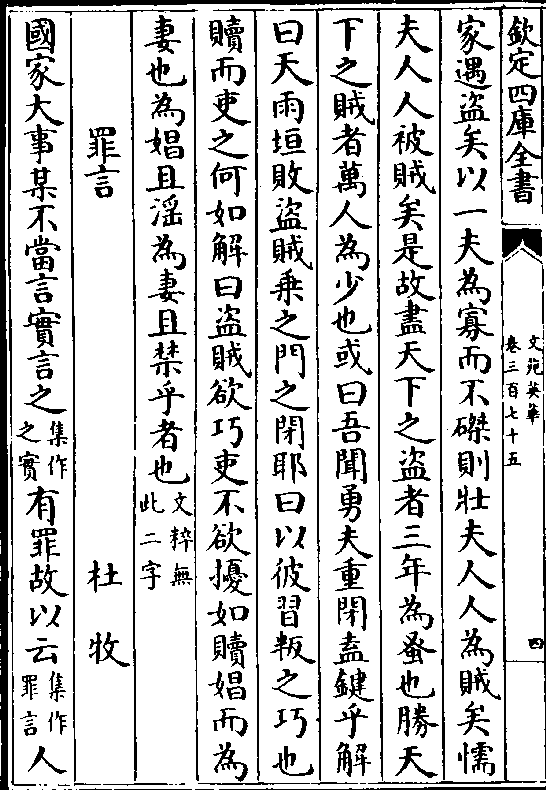 欽定四庫全書
文苑英華
卷三百七十五
四
家遇盜矣以一夫為寡而不磔則壯夫人人為賊矣懦
夫人人被賊矣是故盡天下之盜者三年為蚤也勝天
下之賊者萬人為少也或曰吾聞勇夫重閉盍鍵乎解
曰天雨垣敗盜賊乗之門之閉耶曰以彼習叛之巧也
贖而吏之何如解曰盜賊欲巧吏不欲擾如贖娼而為
妻也為娼且淫為妻且禁乎者也文粹無此二字
罪言 杜牧
國家大事某不當言實言之集作之實有罪故以云集作罪言人